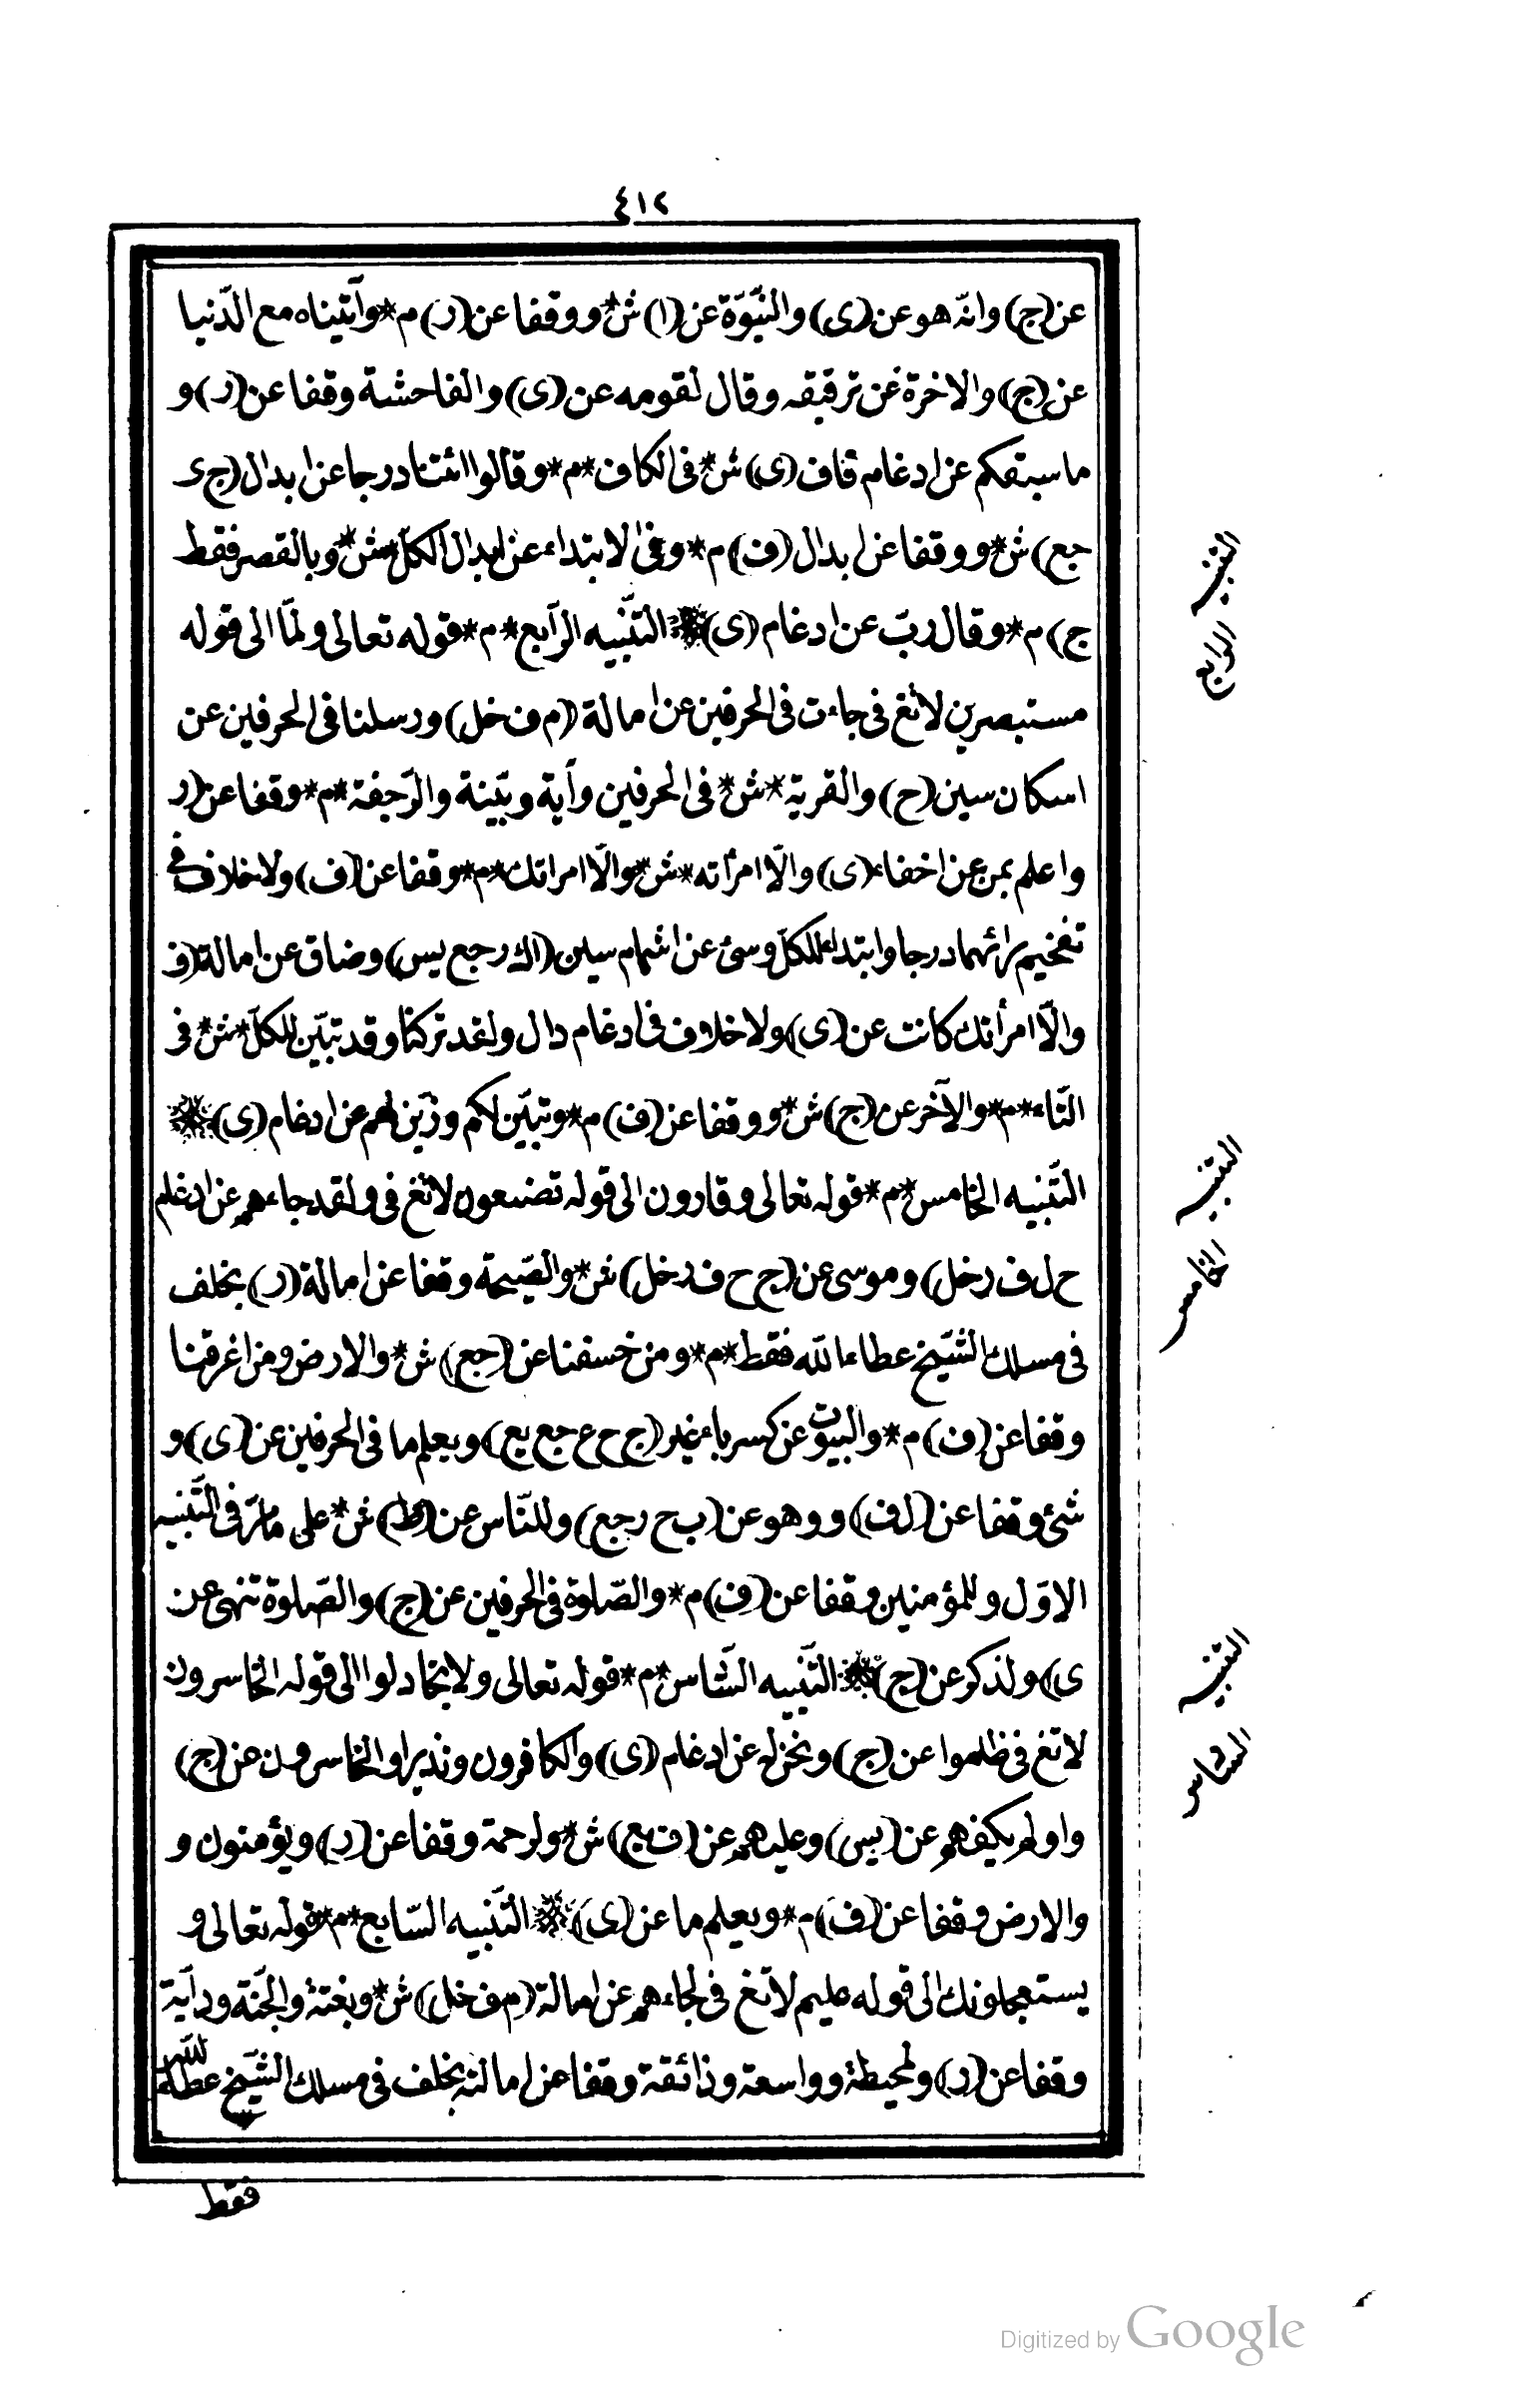 ٤١٢
عن (ج) وانّه هو عن (ى) والنّبوّة عن (ا) ش* ووقفا عن (ر) م* وآتيناه مع الدّنيا
عن (ج) والاخرة عن ترقيقه وقال لقومه عن (ى) والفاحشة وقفا عن (ر) و
ما سبقكم عن ادغام قاف (ى) ش* فى الكاف *م* وقالوا ائتنا درجا عن ابدال (ج ى
جع) ش* ووقفا عن ابدال (ف) م* وفى الابتداء عن ابدال الكلّ *ش* وبالقصر فقط
ج) م* وقال ربّ عن ادغام (ى) التّنبيه الرّابع *م* قوله تعالى ولمّا الى قوله
مستبصرين لا تغ فى جاءت فى الحرفين عن امالة (م ف خل) ورسلنا فى الحرفين عن
اسكان سين (ح) والقرية *ش* فى الحرفين وآية وبيّنة والرّجفة *م* وقفا عن (ر
واعلم بمن عن اخفاء (ى) والّا امرأته *ش* والّا امراتك *م* وقفا عن (ف) ولا خلاف فى
تفخيم رائهما درجا وابتداء للكلّ وسئ عن اشمام سين (اك رجع يس) وضاق عن امالة (ف
والّا امرأتك كانت عن (ى) ولا خلاف فى ادغام دال ولقد تركنا وقد تبيّن للكلّ *ش* فى
التّاء *م* والآخر عن (ج) ش* ووقفا عن (ف) م* وتبيّن لكم وزيّن لهم عن ادغام (ى)
التّنبيه الخامس *م* قوله تعالى وقارون الى قوله تصنعون لا تغ فى ولقد جاءهم عن ادغام
ح ل ف رخل) وموسى عن (ج ح ف رخل) ش* والصّيحة وقفا عن امالة (ر) بخلف
فى مسلك الشّيخ عطاء الله فقط *م* ومن خسفنا عن (جع) ش* والارض ومن اغرقنا
وقفا عن (ف) م* والبيوت عن كسر باء غير (ج ح ع جع يع) ويعلم ما فى الحرفين عن (ى) و
شئ وقفا عن (ل ف) ووهو عن (ب ح رجع) وللنّاس عن (ط) ش* على ما مرّ فى التّنبيه
الاوّل وللمؤمنين وقفا عن (ف) م* والصّلوة فى الحرفين عن (ج) والصّلوة تنهى عن
ى) ولذكر عن (ج) التّنبيه السّادس *م* قوله تعالى ولا تجادلوا الى قوله الخاسرون
لا تغ فى ظلموا عن (ج) ونحن له عن ادغام (ى) والكافرون ونذير او الخاسرون عن (ج)
واولم يكفهم عن (يس) وعليهم عن (ف يع) ش* ولرحمة وقفا عن (ر) ويؤمنون و
والارض وقفا عن (ف) م* ويعلم ما عن (ى) التّنبيه السّابع *م* قوله تعالى و
يستعجلونك الى قوله عليم لا تغ فى لجاءهم عن امالة (م ف خل) ش* وبغتة والجنّة ودآبّة
وقفا عن (ر) ولمحيطة وواسعة وذائقة وقفا عن امالته بخلف فى مسلك الشّيخ عطاء الله
فقط
التنبيه
الرابع
التنبيه
الخامس
التنبيه
السادس
Digitized by Google